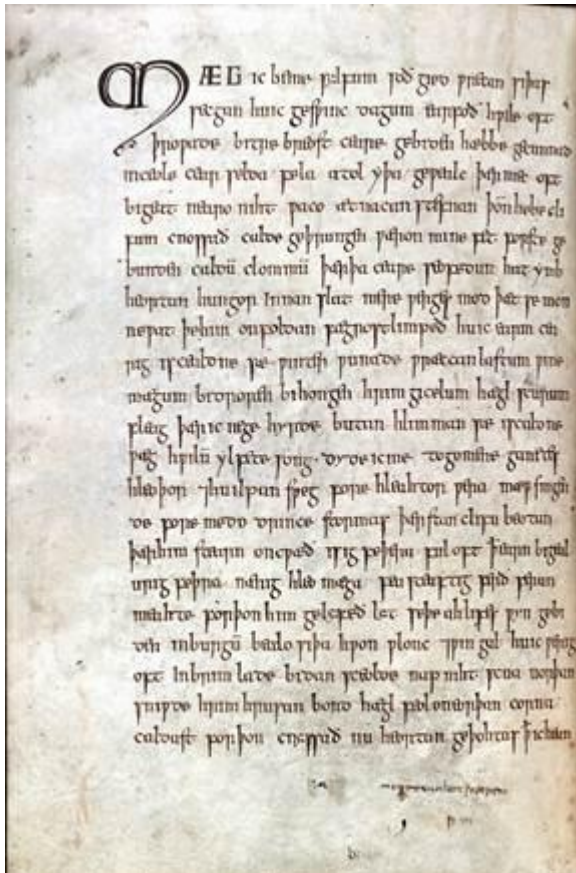 MÆG ic beme sylfum soð gied wrecan siþas
secgan huic geswinc dagum earfoð hwile oft
þrowade bitre breost ceare gebiden hæbbe gecunnad
inceole cear selda fela atol yþa gewealc þær mec oft
bigeat nearo niht waco ætnacan stefnan þon̄ hebe cli
fum cnossað calde geþrungen wæron mine fet forste ge
bunden caldū clommū þærþa ceare seofedun hat ymb
heortan hungor innan slat mere werges mod þæt se mon
newat þehim onfoldan fægnost limpeð huic earm cea
rig iscealdne sæ winter wunade wræccan lastum wine
mægum bidroren bihongen hrim gicelum hægl scurum
fleag þær ic ne gehyrde butan hlimman sæ iscaldne
wæg hwilū ylfete song · dyde icme togomene ganetes
hleoþor ⁊huilpan sweg fore hleahtor wera mæw singen
de fore medo drince stormas þær stan clifu beotan
þær him stearn oncwæð isig feþera ful oft ꝥ earn bigeal
urig feþra nænig hleo mæga fea sceaftig ferð
meahte forþon him gelyfeð lyt seþe ahlifes wyn gebi
den inburgū bealo siþa hwon wlonc ⁊win gal huic werig
oft inbrim lade bidan sceolde nap niht scua norþan
sniwde hrim hrusan bond hægl feol oneorþan corna
caldast forþon cnyssað nu heortan geþohtas ꝥ ic hean